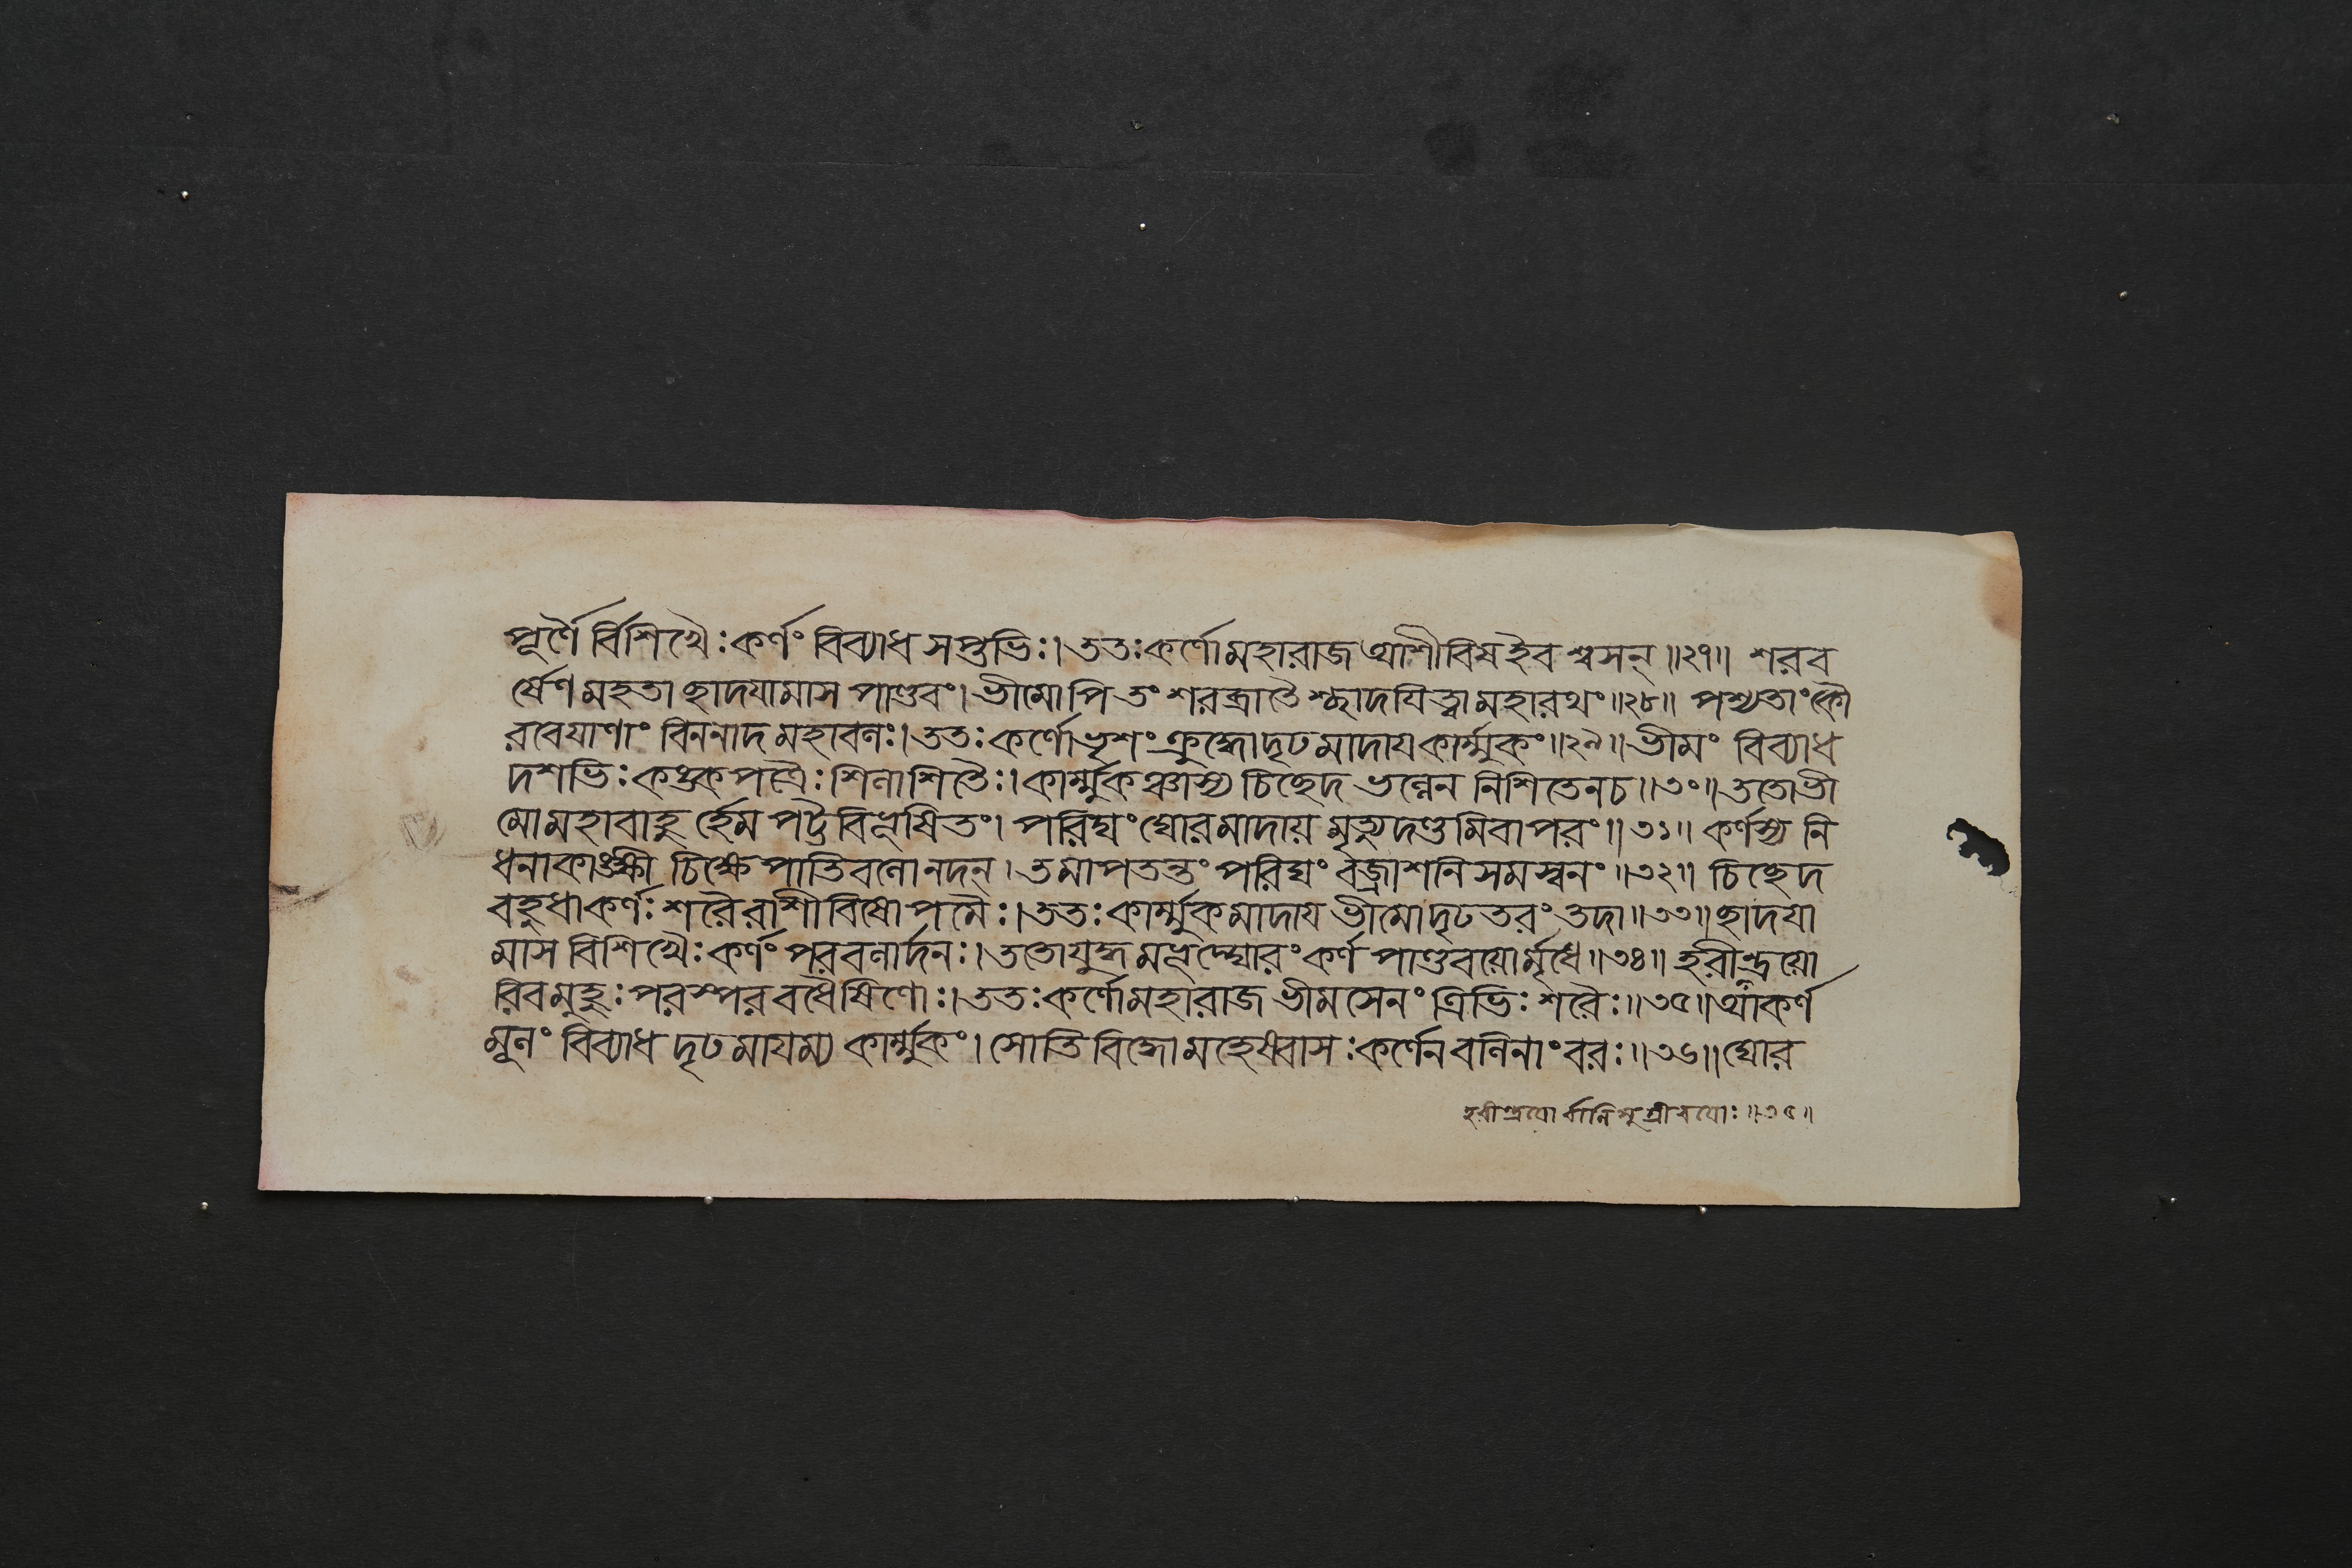 পূর্ণৈ র্বিশিখৈঃ কর্ণং বিব্যাধ সপ্তভিঃ। ততঃ কর্ণো মহারাজ আশীবিষ ইব শ্বসন্ ॥২৭॥ শরব
র্ষেণ মহতা ছাদয়ামাস পাণ্ডবং। ভীমোপি তং শরব্রাতৈ শ্ছাদয়িত্বা মহারথং ॥২৮॥ পশ্যতাং কৌ
রবেয়াণাং বিননাদ মহাবলঃ। ততঃ কর্ণো ভৃশং ক্রুদ্ধো দৃঢমাদায় কার্ম্মুকং ॥২৯॥ ভীমং বিব্যাধ
দশভিঃ কঙ্কপত্রৈঃ শিলাশিতৈঃ। কার্ম্মুকঞ্চাস্য চিচ্ছেদ ভল্লেন নিশিতেন চ ॥৩০॥ ততো ভী
মো মহাবাহু র্হেমপট্টবিভূষিতং। পরিঘং ঘোরমাদায় মৃত্যুদণ্ডমিবাপরং ॥৩১॥ কর্ণস্য নি
ধনাকাঙ্ক্ষী চিক্ষেপাতিবলো নদন্। তমাপতন্তং পরিঘং বজ্রাশনিসমস্বনং ॥৩২॥ চিচ্ছেদ
বহুধা কর্ণঃ শরৈরাশীবিষোপমৈঃ। ততঃ কার্ম্মুকমাদায় ভীমো দৃঢতরং তদা ॥৩৩॥ ছাদয়া
মাস বিশিখৈঃ কর্ণং পরবলার্দনঃ। ততো যুদ্ধমভূদ্ঘোরং কর্ণপাণ্ডবয়োর্মৃধে ॥৩৪॥ হরীন্দ্রয়ো
রিব মুহুঃ পরস্পরবধৈষিণোঃ। ততঃ কর্ণো মহারাজ ভীমসেনং ত্রিভিঃ শরৈঃ ॥৩৫॥ আকর্ণ
মূলং বিব্যাধ দৃঢমায়ম্য কার্ম্মুকং। সোতিবিদ্ধো মহেষ্বাসঃ কর্ণেন বলিনাং বরঃ ॥৩৬॥ ঘোর
হরীন্দ্রয়োর্বালিসুগ্রীবয়োঃ ॥৩৫॥